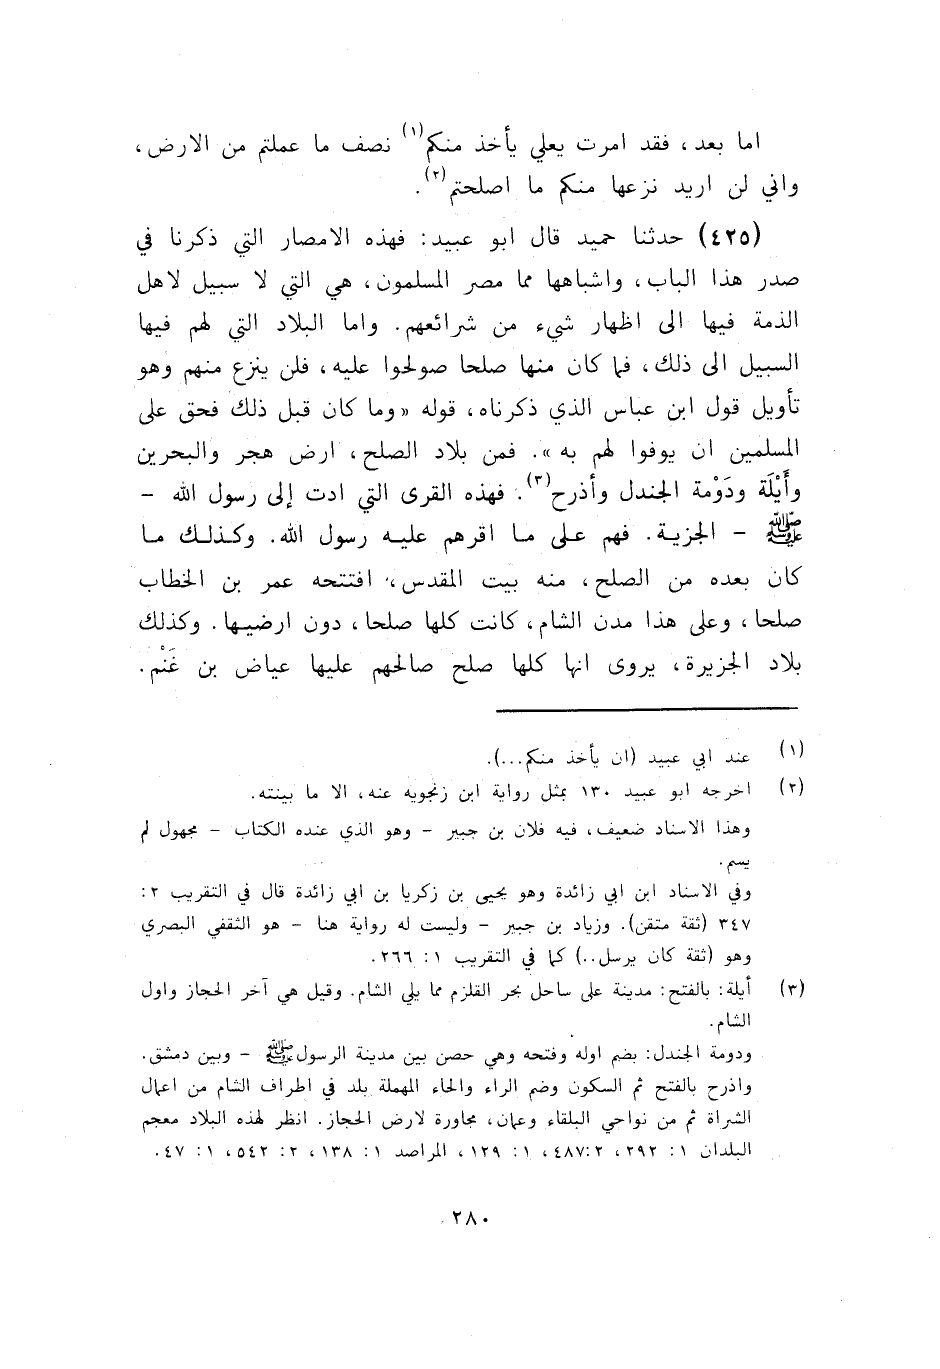 اما بعد، فقد امرت يعلي يأخذ منكم(١) نصف ما عملتم من الارض،
واني لن اريد نزعها منكم ما اصلحتم(٢).
(٤٢٥) حدثنا حميد قال ابو عبيد: فهذه الامصار التي ذكرنا في
صدر هذا الباب، واشباهها مما مصر المسلمون، هي التي لا سبيل لاهل
الذمة فيها الى اظهار شيء من شرائعهم. واما البلاد التي لهم فيها
السبيل الى ذلك، فما كان منها صلحا صولحوا عليه، فلن ينزع منهم وهو
تأويل قول ابن عباس الذي ذكرناه، قوله «وما كان قبل ذلك فحق على
المسلمين ان يوفوا لهم به». فمن بلاد الصلح، ارض هجر والبحرين
وأَيْلَة ودَوْمة الجندل وأذرح(٣). فهذه القرى التي ادت إلى رسول الله -
ﷺ - الجزية. فهم على ما اقرهم عليه رسول الله. وكذلك ما
كان بعده من الصلح، منه بيت المقدس، افتتحه عمر بن الخطاب
صلحا، وعلى هذا مدن الشام، كانت كلها صلحا، دون ارضيها. وكذلك
بلاد الجزيرة، يروى انها كلها صلح صالحهم عليها عياض بن غَنْم.
(١) عند ابي عبيد (ان يأخذ منكم...).
(٢) اخرجه ابو عبيد ١٣٠ بمثل رواية ابن زنجويه عنه، الا ما بينته.
وهذا الاسناد ضعيف، فيه فلان بن جبير - وهو الذي عنده الكتاب - مجهول لم
يسم.
وفي الاسناد ابن ابي زائدة وهو يحيى بن زكريا بن ابي زائدة قال في التقريب ٢:
٣٤٧ (ثقة متقن). وزياد بن جبير - وليست له رواية هنا - هو الثقفي البصري
وهو (ثقة كان يرسل..) كما في التقريب ١: ٢٦٦.
(٣) أيلة: بالفتح: مدينة على ساحل بحر القلزم مما يلي الشام. وقيل هي آخر الحجاز واول
الشام.
ودومة الجندل: بضم اوله وفتحه وهي حصن بين مدينة الرسول ﷺ - وبين دمشق.
واذرح بالفتح ثم السكون وضم الراء والحاء المهملة بلد في اطراف الشام من اعمال
الشراة ثم من نواحي البلقاء وعمان، مجاورة لارض الحجاز. انظر لهذه البلاد معجم
البلدان ١: ٢٩٢، ٢:٤٨٧، ١: ١٢٩، المراصد ١: ١٣٨، ٢: ٥٤٢، ١: ٤٧.
٢٨٠